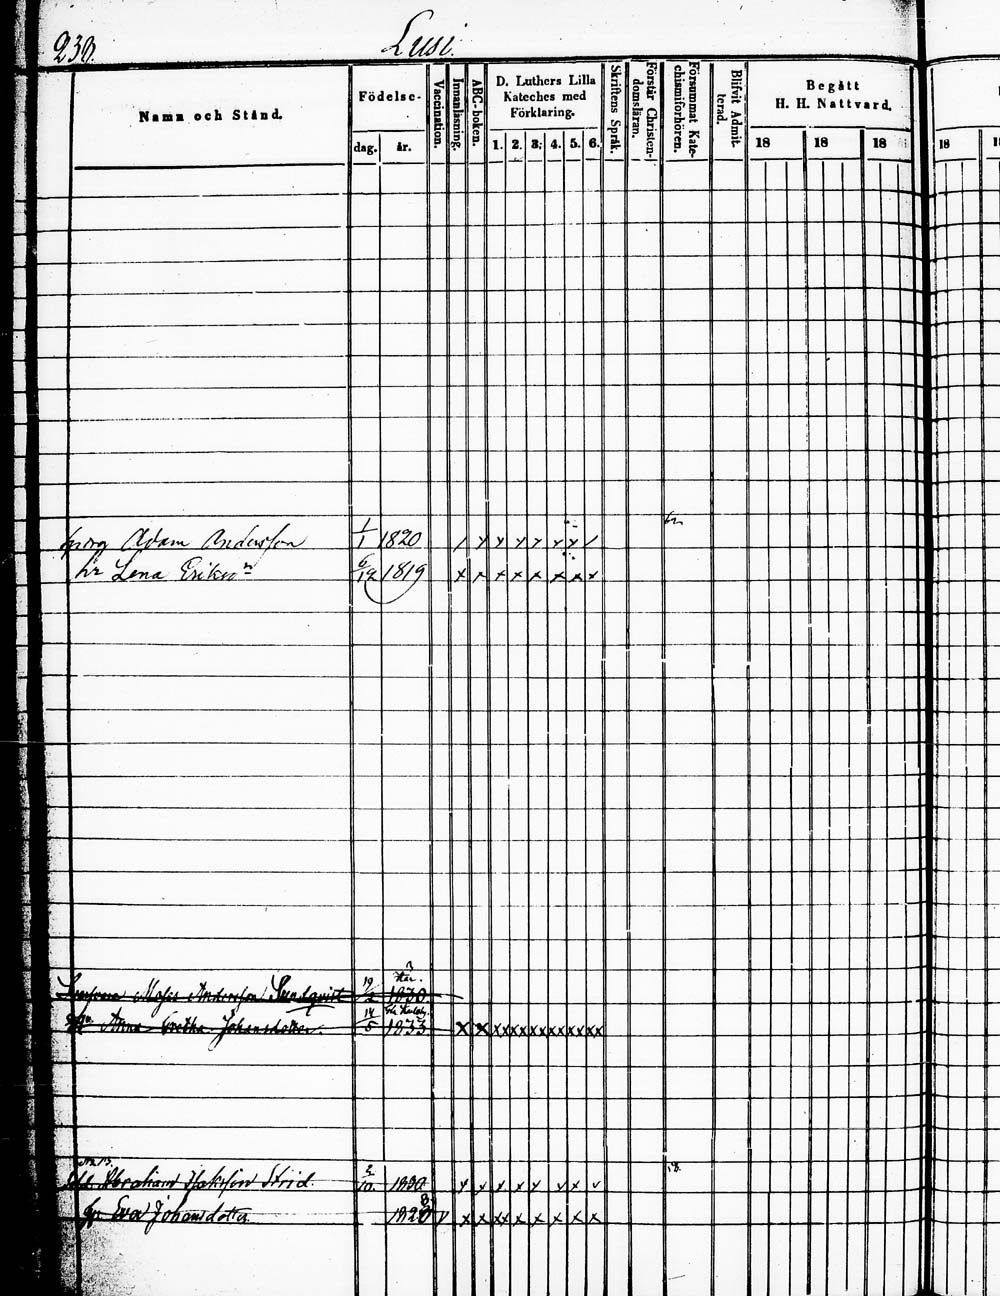 239. Lusi.
Namn och Stånd.
Födelse-
dag. år.
Vaccination.
Innanläsning.
ABC-boken.
D. Luthers Lilla
Kateches med
Förklaring.
1. 2. 3. 4. 5. 6.
Skriftens Språk.
Förstår Christen-
domsläran.
Försummat Kate-
chismiförhören.
Blifvit Admit-
terad.
Begått
H. H. Nattvard.
18 18 18 18
Adam Andersson 1/1 1820 / x x x x x x /
Lena Eriksn 1819 x x x x x x x x
Mats Andersson Sundqvist 19/2 1830
Anna Gretha Johansdotter 14/5 1833 x x xx xx xx xx xx xx
Abraham Strid. 2/10 1830 x x x x x x x
Eva Johansdotter 1828 x x xx x x x x x